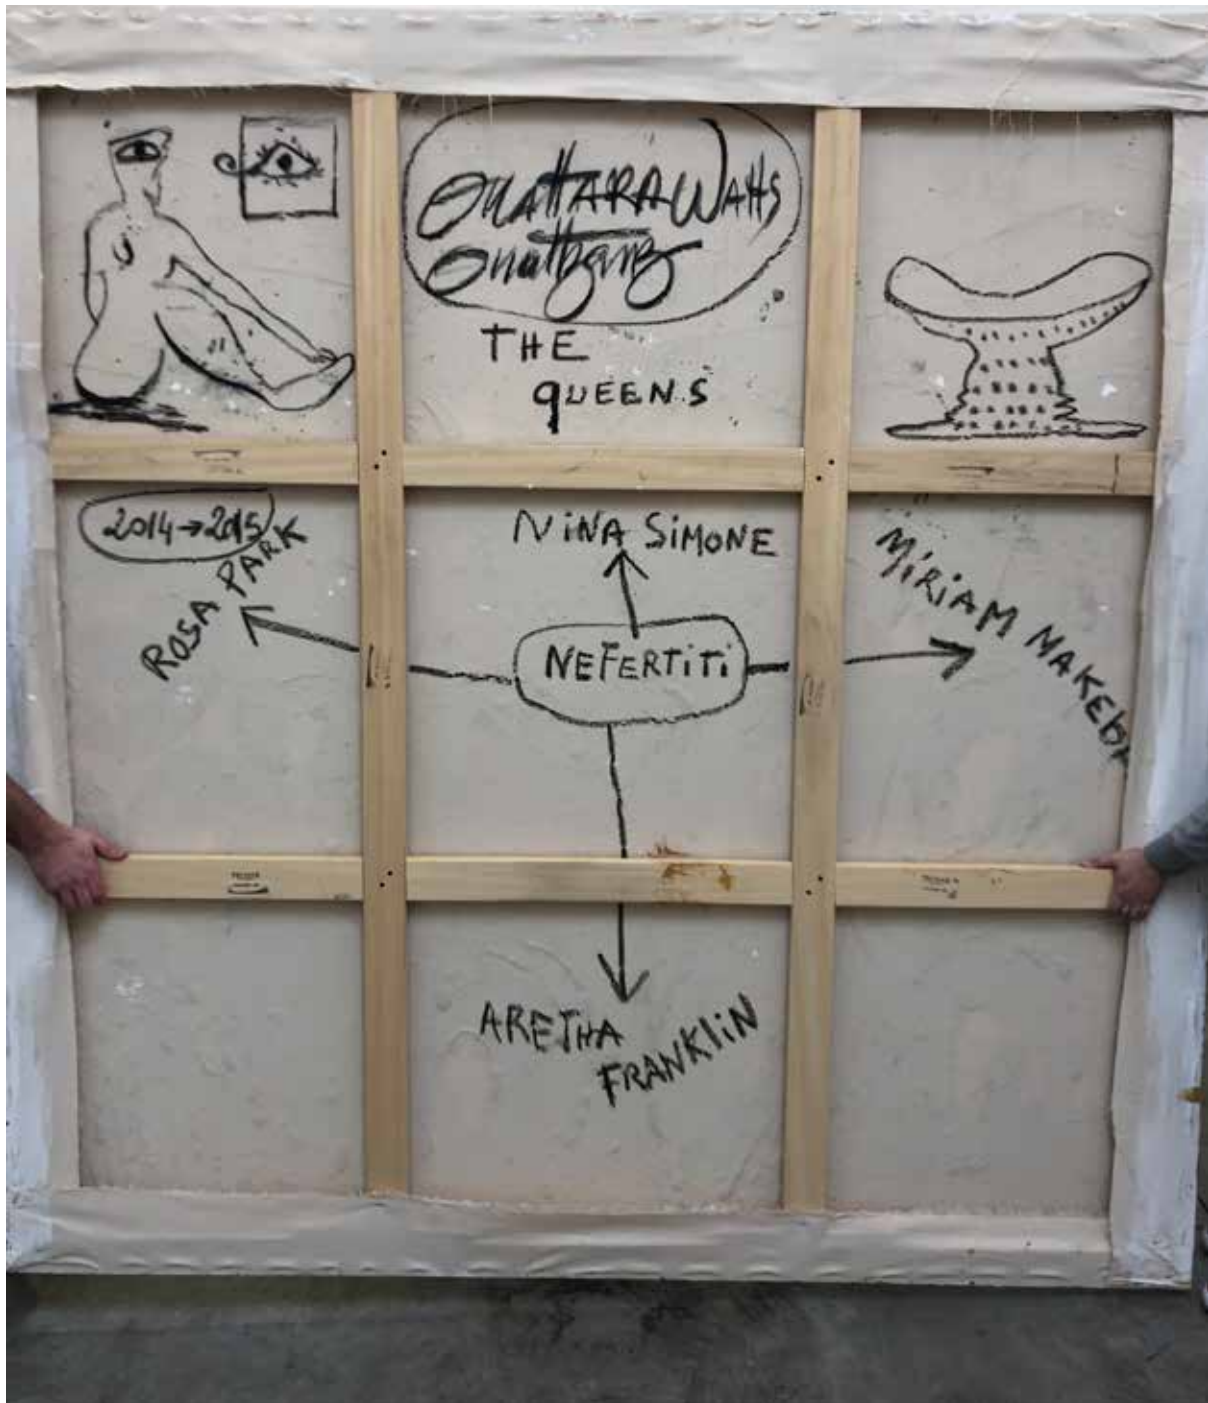 OUATTARA WATTS
THE
QUEENS
2014→2015
ROSA PARK
NiNA SiMONE
MiRiAM MAKEBA
NEFERTiTi
ARETHA
FRANKLiN